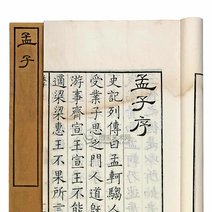 孟子序
史記列傳曰孟軻騶人
受業子思之門人道既
游事齊宣王宣王不能
適梁梁惠王不果所言
孟子